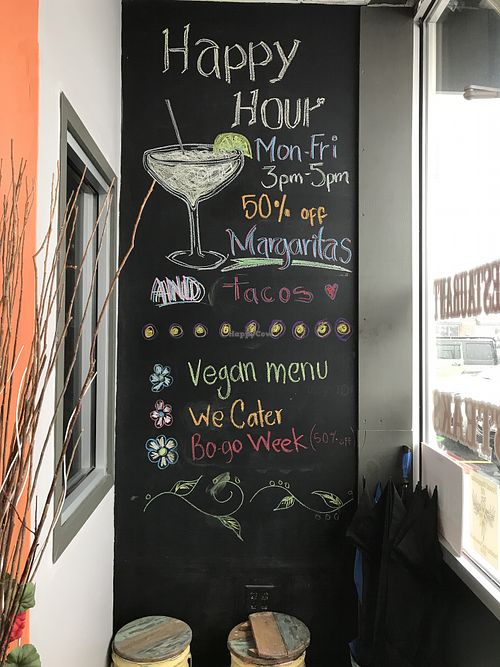 Happy
Hour
Mon-Fri
3pm-5pm
50% off
Margaritas
AND Tacos
HappyCow
Vegan menu
We Cater
Bo-go Week (50% off)
ESTAURANT